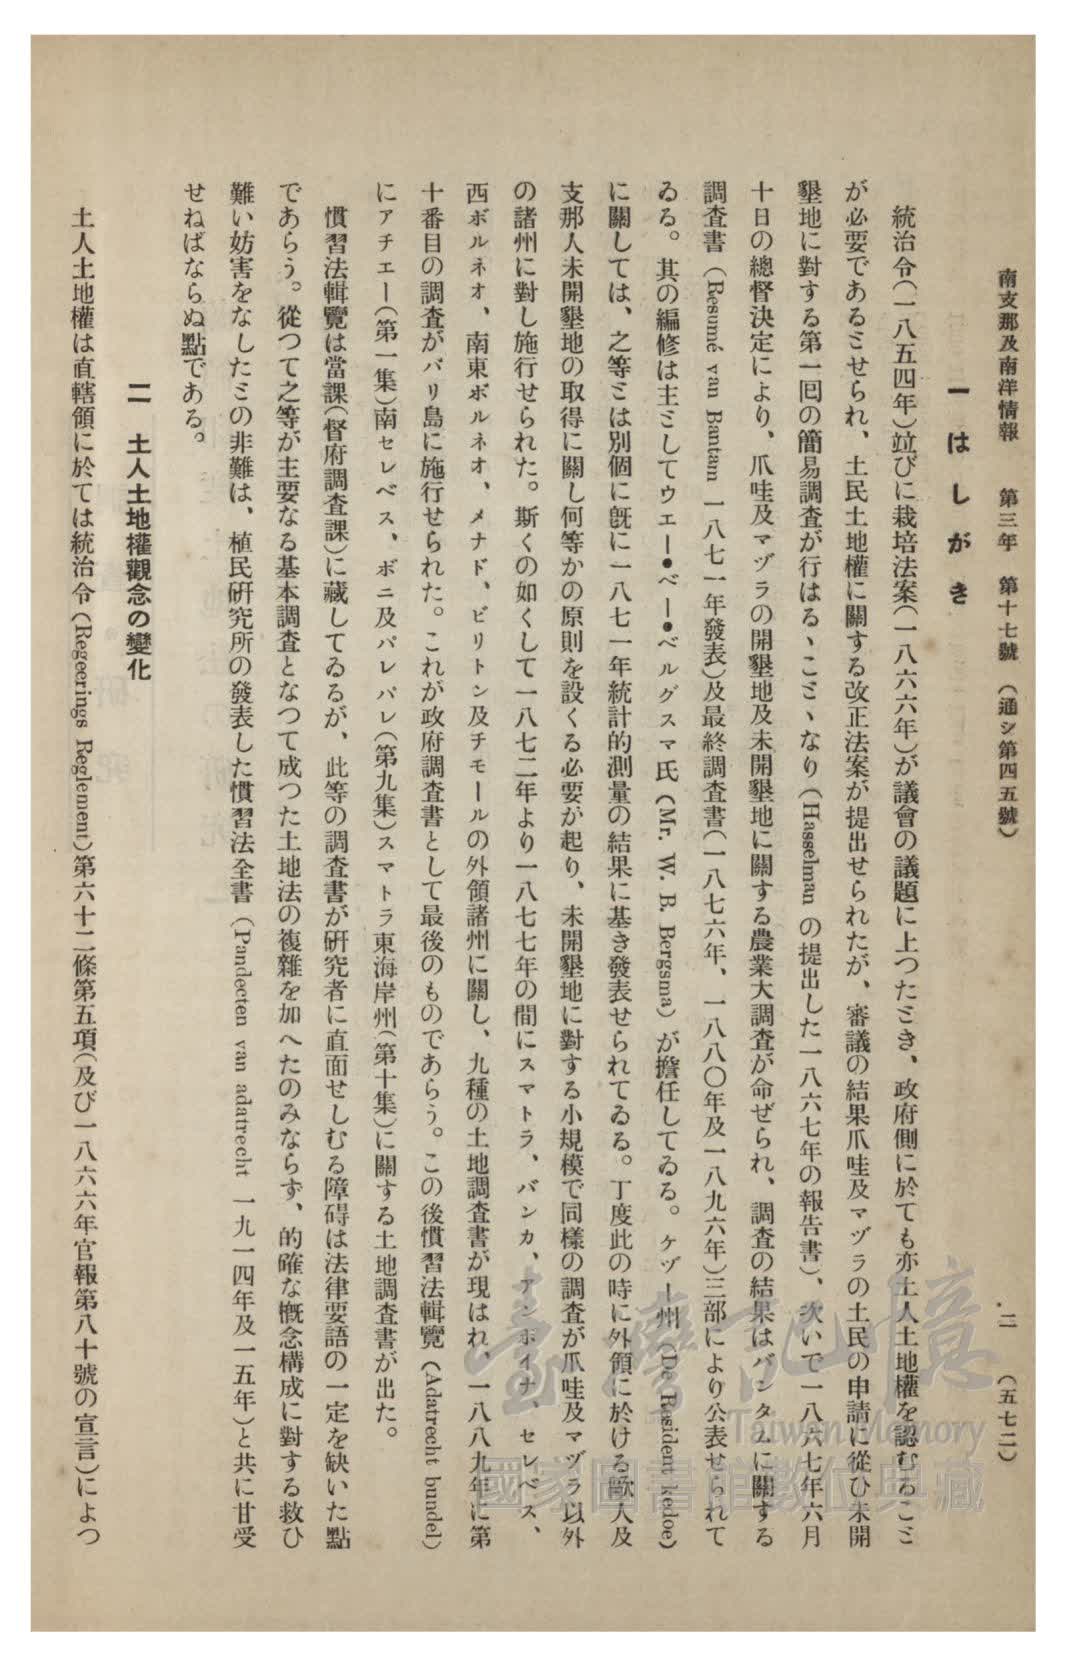 南支那及南洋情報　第三年　第十七號　（通シ第四五號）
二　（五七二）
一　はしがき
統治令（一八五四年）竝びに栽培法案（一八六六年）が議會の議題に上つたとき、政府側に於ても亦土人土地權を認むること
が必要であるとせられ、土民土地權に關する改正法案が提出せられたが、審議の結果爪哇及マヅラの土民の申請に從ひ未開
墾地に對する第一囘の簡易調査が行はるゝことゝなり（Hasselman の提出した一八六七年の報告書）、次いで一八六七年六月
十日の總督決定により、爪哇及マヅラの開墾地及未開墾地に關する農業大調査が命ぜられ、調査の結果はバンタムに關する
調査書（Besumé van Bantam 一八七一年發表）及最終調査書（一八七六年、一八八〇年及一八九六年）三部により公表せられて
ゐる。其の編修は主としてウエー•ベー•ベルグスマ氏（Mr. W. B. Bergsma）が擔任してゐる。ケヅー州（De Resident kedoe）
に關しては、之等とは別個に旣に一八七一年統計的測量の結果に基き發表せられてゐる。丁度此の時に外領に於ける歐人及
支那人未開墾地の取得に關し何等かの原則を設くる必要が起り、未開墾地に對する小規模で同樣の調査が爪哇及マヅラ以外
の諸州に對し施行せられた。斯くの如くして一八七二年より一八七七年の間にスマトラ、バンカ、アンボイナ、セレベス、
西ボルネオ、南東ボルネオ、メナド、ビリトン及チモールの外領諸州に關し、九種の土地調査書が現はれ、一八八九年に第
十番目の調査がバリ島に施行せられた。これが政府調査書として最後のものであらう。この後慣習法輯覽（Adatrecht bundel）
にアチエー（第一集）南セレベス、ボニ及パレパレ（第九集）スマトラ東海岸州（第十集）に關する土地調査書が出た。
慣習法輯覽は當課（督府調査課）に藏してゐるが、此等の調査書が硏究者に直面せしむる障碍は法律要語の一定を缺いた點
であらう。從つて之等が主要なる基本調査となつて成つた土地法の複雜を加へたのみならず、的確な槪念構成に對する救ひ
難い妨害をなしたとの非難は、植民硏究所の發表した慣習法全書（Pandecten van adatrecht 一九一四年及一五年）と共に甘受
せねばならぬ點である。
二　土人土地權觀念の變化
土人土地權は直轄領に於ては統治令（Regeerings Reglement）第六十二條第五項（及び一八六六年官報第八十號の宣言）によつ
臺灣記憶
Taiwan Memory
國家圖書館數位典藏